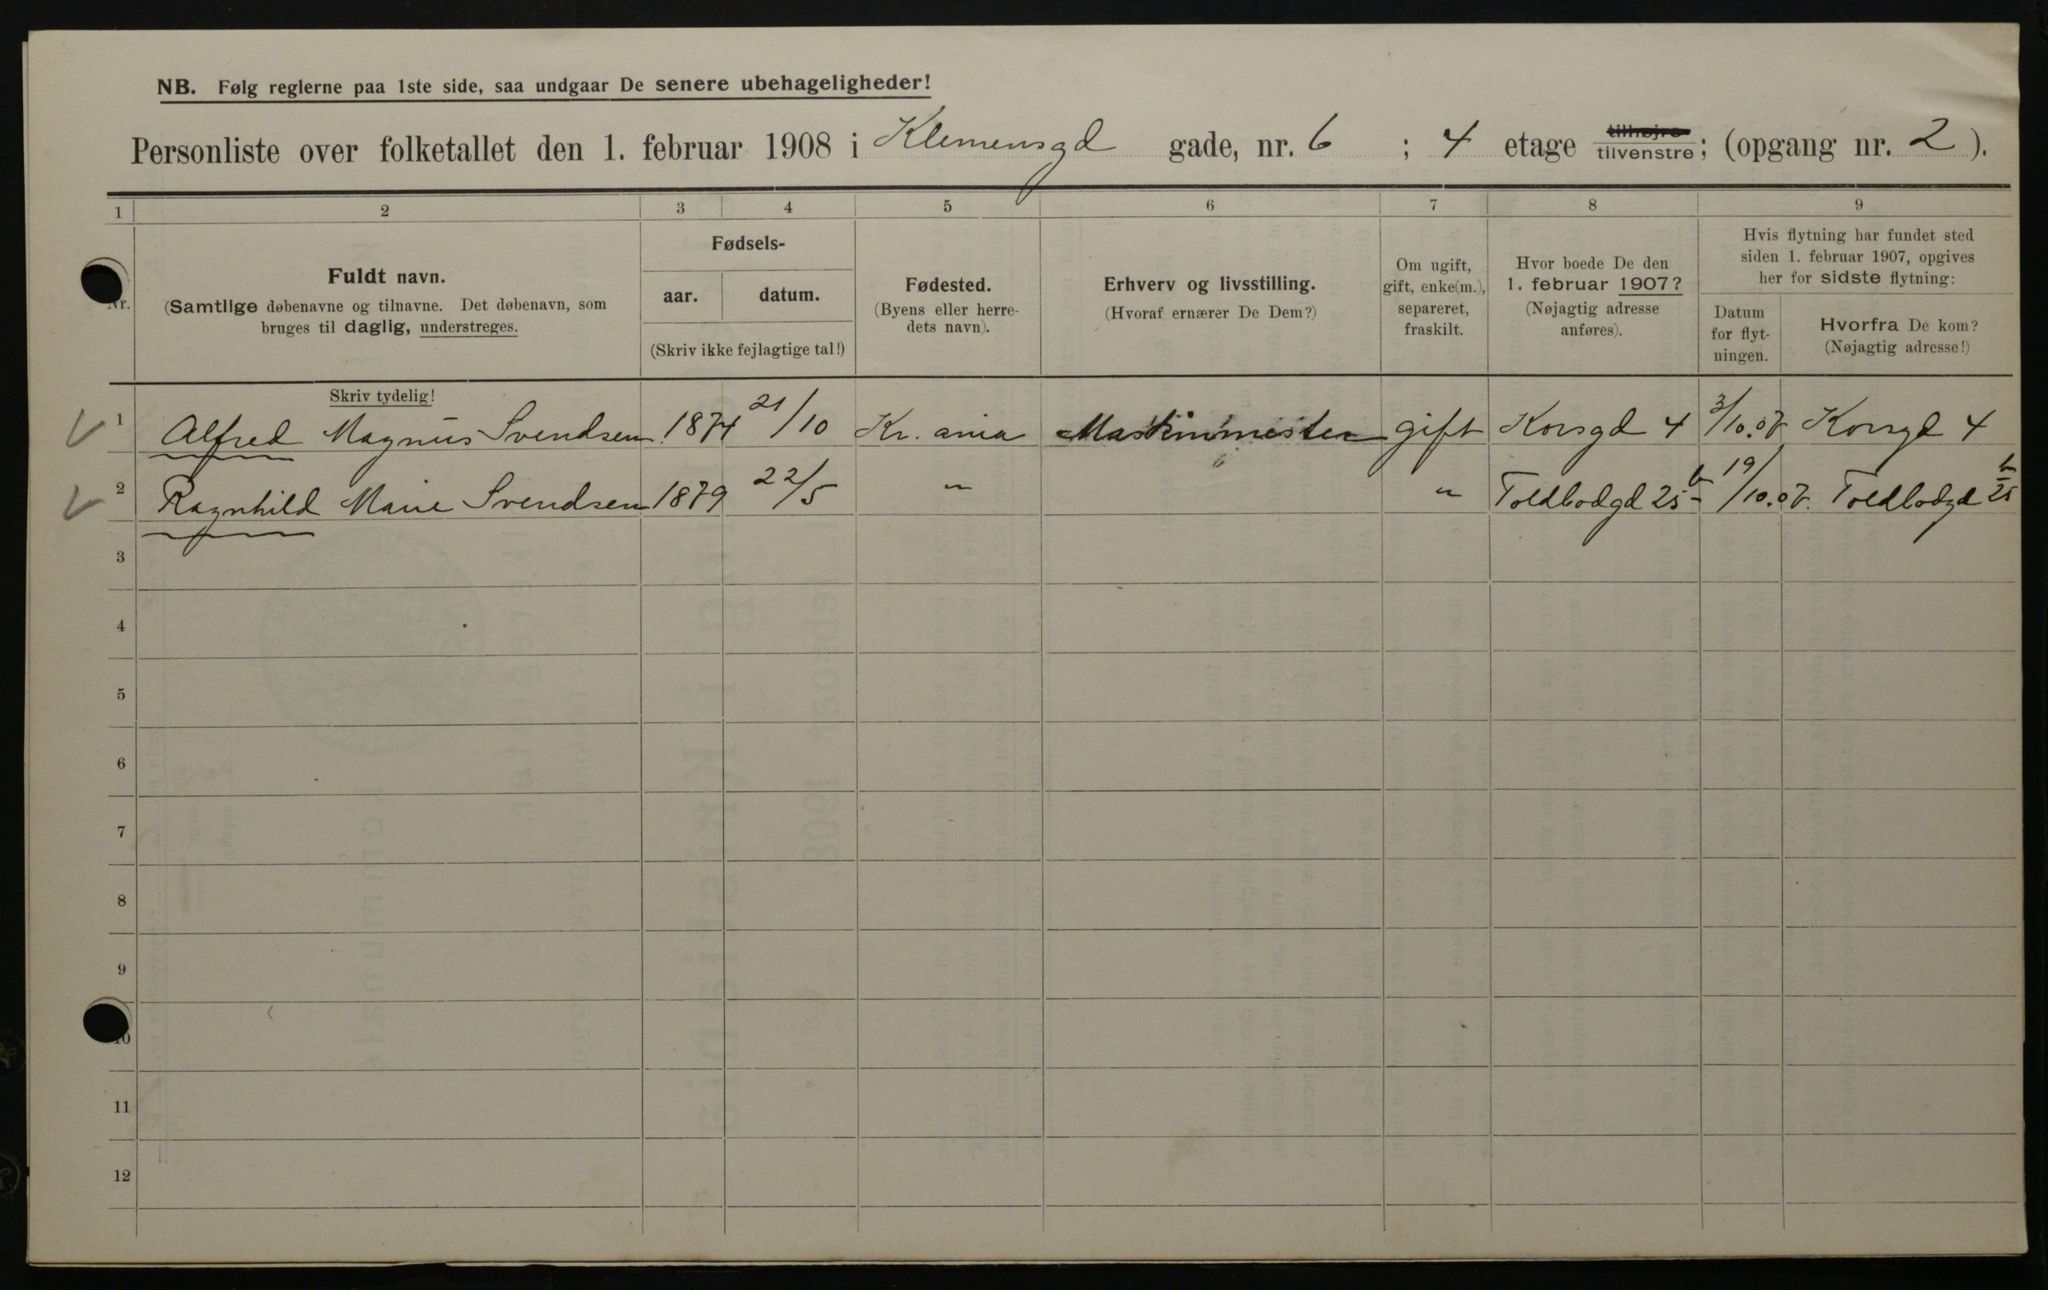 NB. Følg reglerne paa 1ste side, saa undgaar De senere ubehageligheder!
Personliste over folketallet den 1. februar 1908 i Klemensgd gade, nr. 6 ; 4 etage tilhøjre tilvenstre; (opgang nr. 2 ).
1 2 3 4 5 6 7 8 9
Nr.
Fuldt navn.
(Samtlige døbenavne og tilnavne. Det døbenavn, som
bruges til daglig, understreges.
Fødsels-
aar. datum.
(Skriv ikke fejlagtige tal!)
Fødested.
(Byens eller herre-
dets navn).
Erhverv og livsstilling.
(Hvoraf ernærer De Dem?)
Om ugift,
gift, enke(m.),
separeret,
fraskilt.
Hvor boede De den
1. februar 1907?
(Nøjagtig adresse
anføres).
Hvis flytning har fundet sted
siden 1. februar 1907, opgives
her for sidste flytning:
Datum
for flyt-
ningen.
Hvorfra De kom?
(Nøjagtig adresse!)
Skriv tydelig!
1 Alfred Magnus Svendsen 1874 21/10 Kr. ania Maskinmester gift Korsgd 4 3/10.07 Korsgd 4
2 Ragnhild Marie Svendsen 1879 22/5 " " Toldbodgd 25 b 19/10.07. Toldbodgd 25 b
3
4
5
6
7
8
9
10
11
12